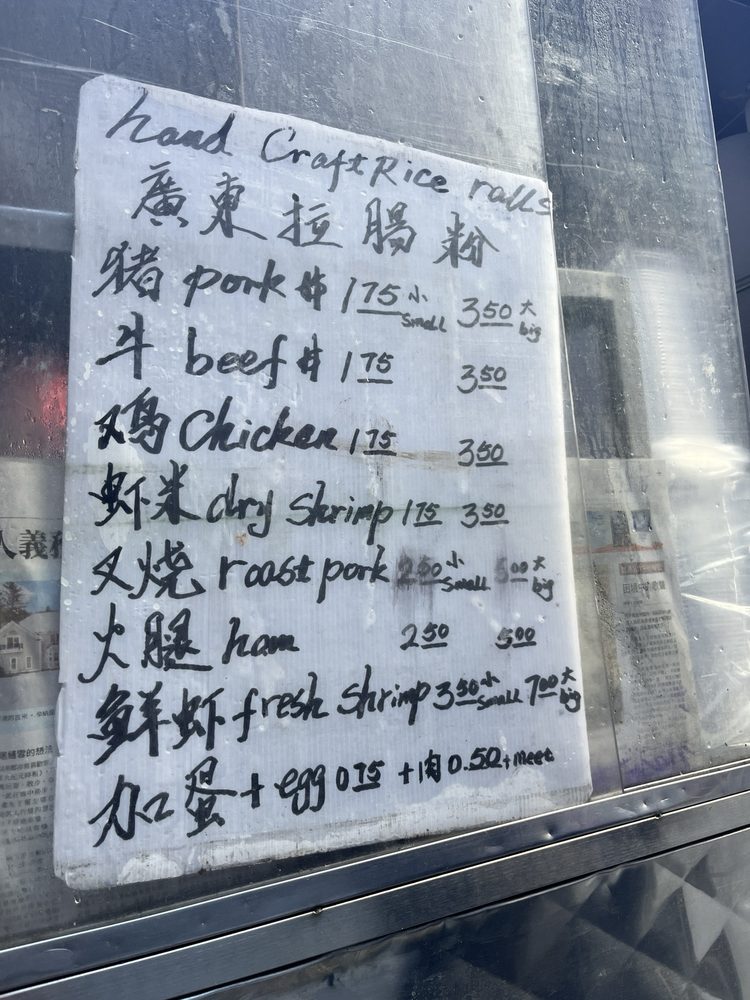 hand Craft Rice ralls
廣東拉腸粉
猪 pork $ 1.75 小 small 3.50 大 big
牛 beef $ 1.75 3.50
鸡 Chicken 1.75 3.50
虾米 dry shrimp 1.75 3.50
叉燒 roast pork 2.50 小 small 5.00 大 big
火腿 ham 2.50 5.00
鲜虾 fresh shrimp 3.50 小 small 7.00 大 big
加蛋 + egg 0.75 + 肉 0.50 + meet